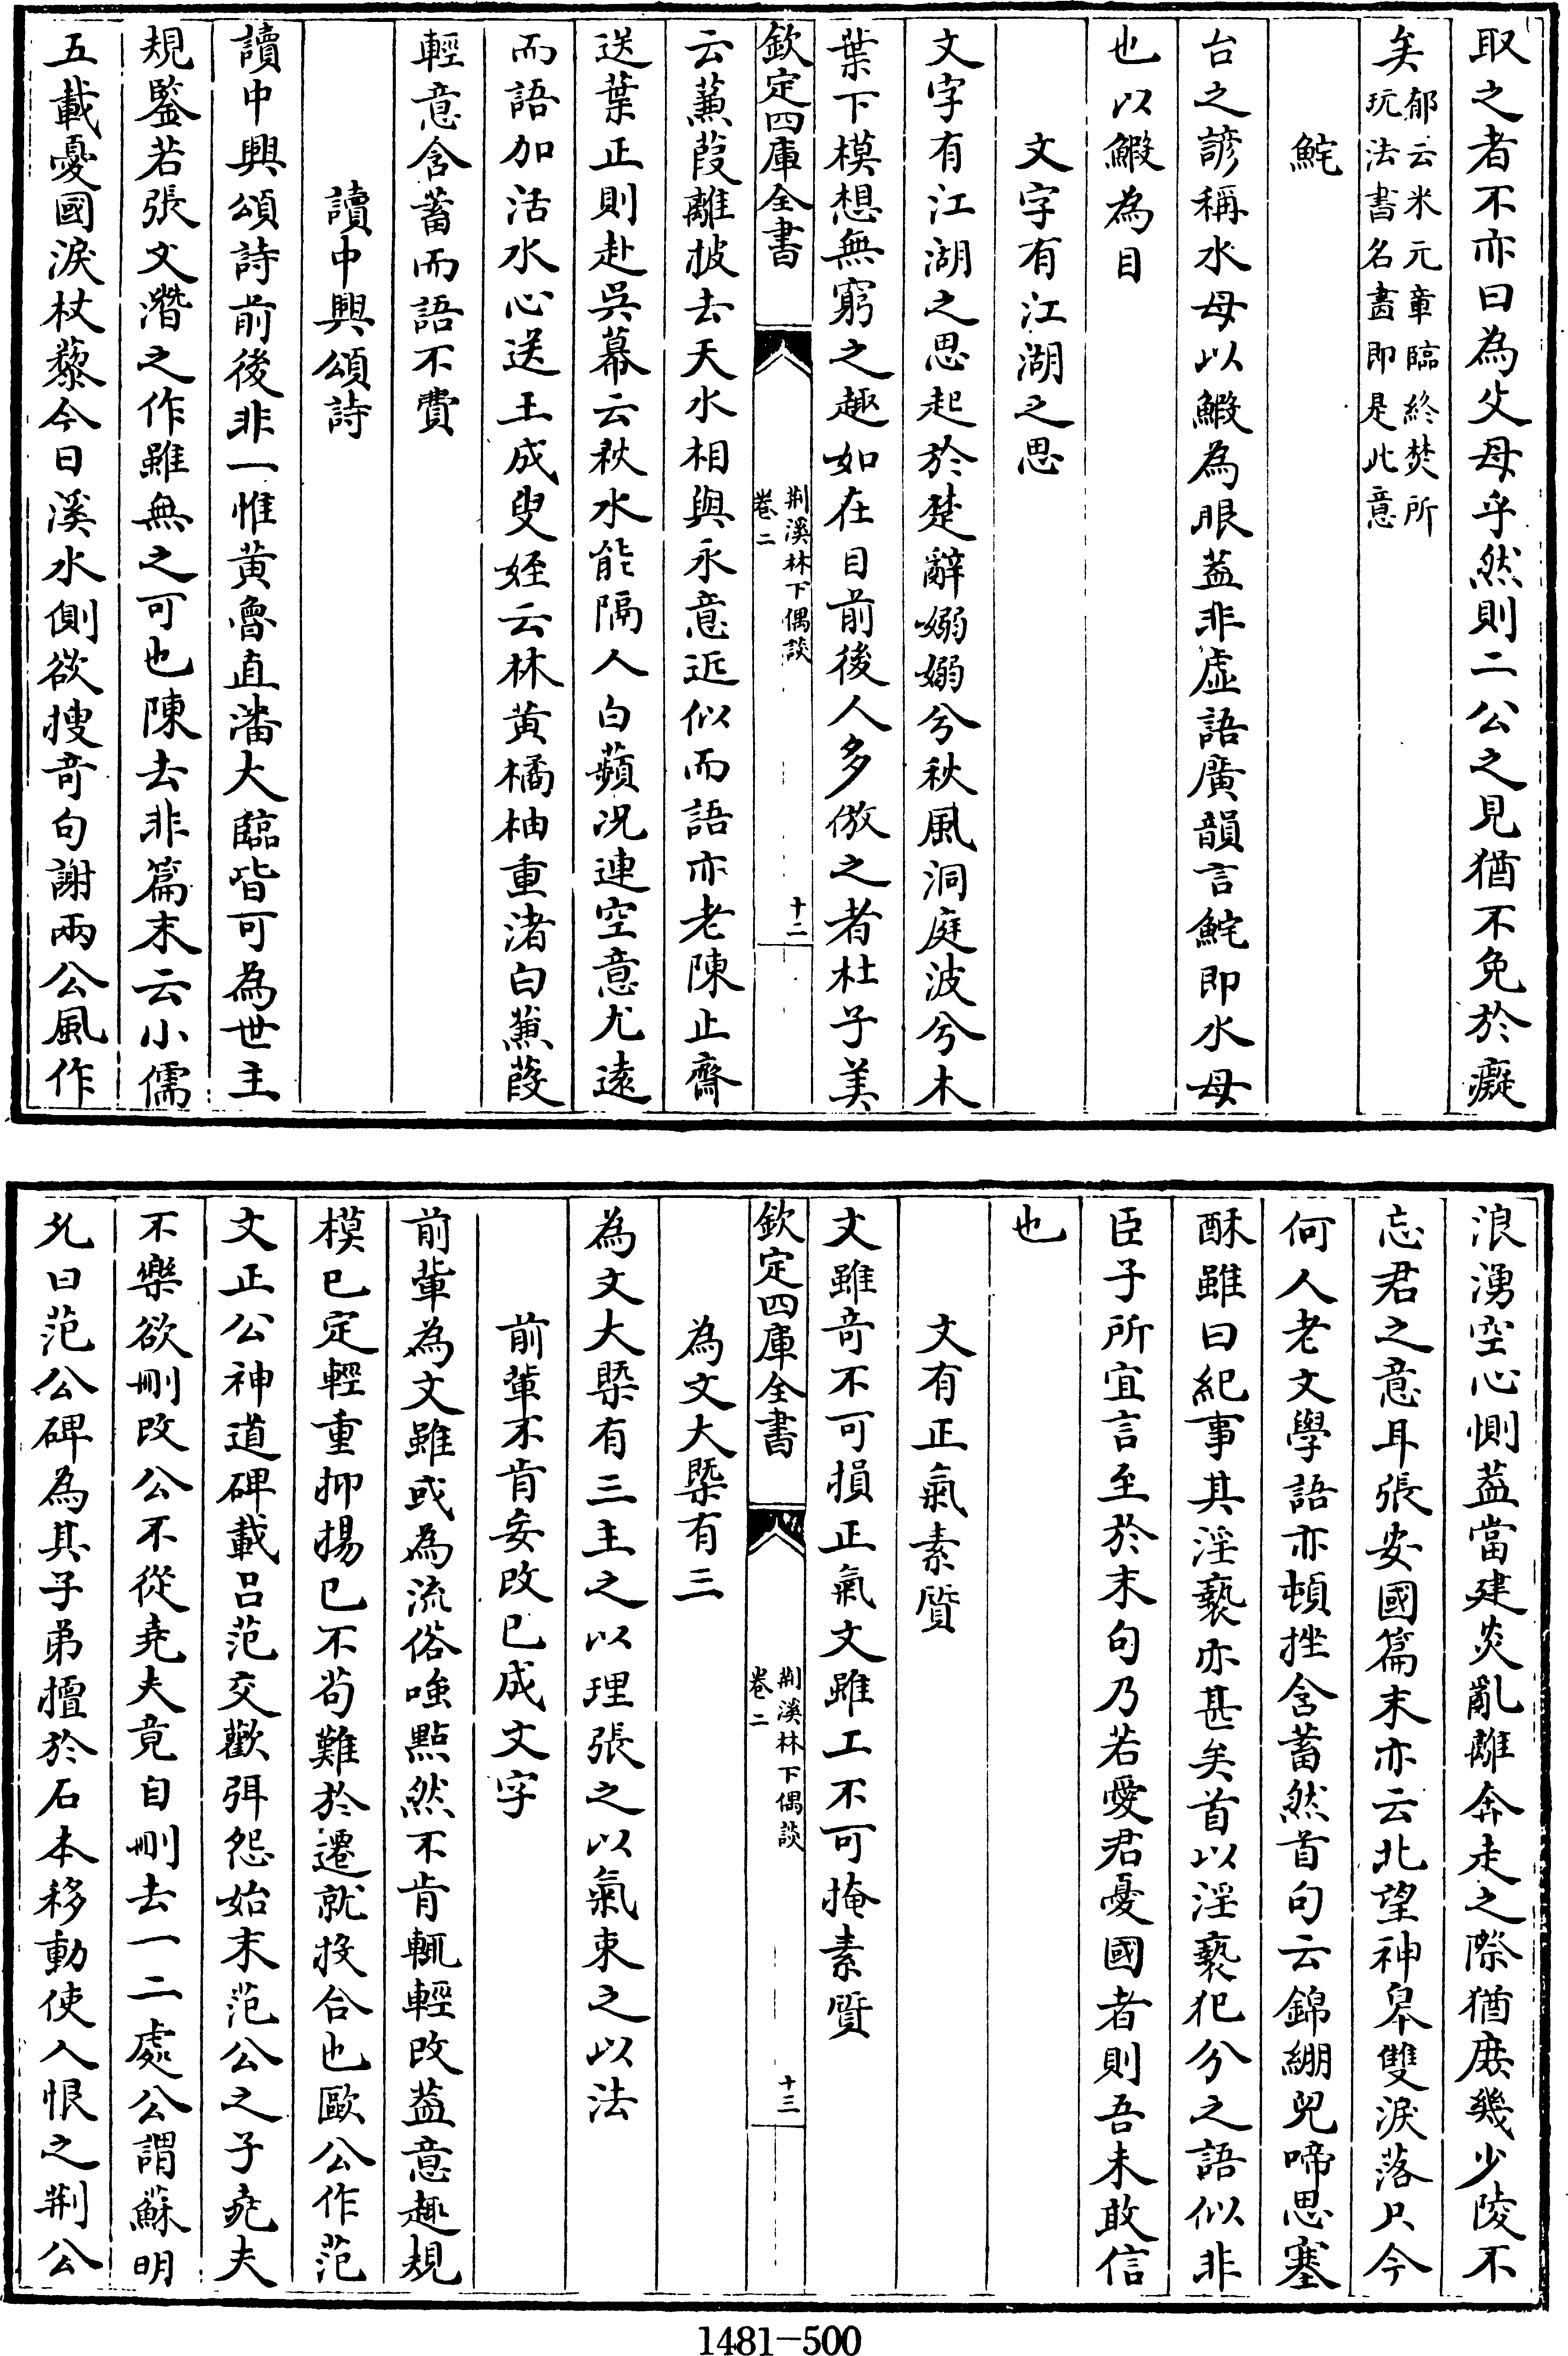 取之者不亦曰為父母乎然則二公之見猶不免於癡
矣郁云米元章臨終焚所玩法書名畵即是此意
鮀
台之諺稱水母以鰕為眼葢非虛語廣韻言鮀即水母
也以鰕為目
文字有江湖之思
文字有江湖之思起於楚辭嫋嫋兮秋風洞庭波兮木
葉下模想無窮之趣如在目前後人多倣之者杜子美
欽定四庫全書
荆溪林下偶談
卷二
十二
云蒹葭離披去天水相與永意近似而語亦老陳止齋
送葉正則赴吳幕云秋水能隔人白蘋况連空意尤逺
而語加活水心送王成叟姪云林黄橘柚重渚白蒹葭
輕意含蓄而語不費
讀中興頌詩
讀中興頌詩前後非一惟黄魯直潘大臨皆可為世主
規鑒若張文潛之作雖無之可也陳去非篇末云小儒
五載憂國淚杖藜今日溪水側欲搜竒句謝兩公風作
浪湧空心惻葢當建炎亂離奔走之際猶庶幾少陵不
忘君之意耳張安國篇末亦云北望神皋雙淚落只今
何人老文學語亦頓挫含蓄然首句云錦綳兒啼思塞
酥雖曰紀事其淫褻亦甚矣首以淫褻犯分之語似非
臣子所宜言至於末句乃若愛君憂國者則吾未敢信
也
文有正氣素質
文雖竒不可損正氣文雖工不可掩素質
欽定四庫全書
荆溪林下偶談
卷二
十三
為文大槩有三
為文大槩有三主之以理張之以氣束之以法
前輩不肯妄改已成文字
前輩為文雖或為流俗嗤點然不肯輒輕改葢意趣規
模已定輕重抑揚已不茍難於遷就投合也歐公作范
文正公神道碑載吕范交歡弭怨始末范公之子堯夫
不樂欲刪改公不從堯夫竟自刪去一二處公謂蘇明
允曰范公碑為其子弟擅於石本移動使人恨之荆公
1481-500